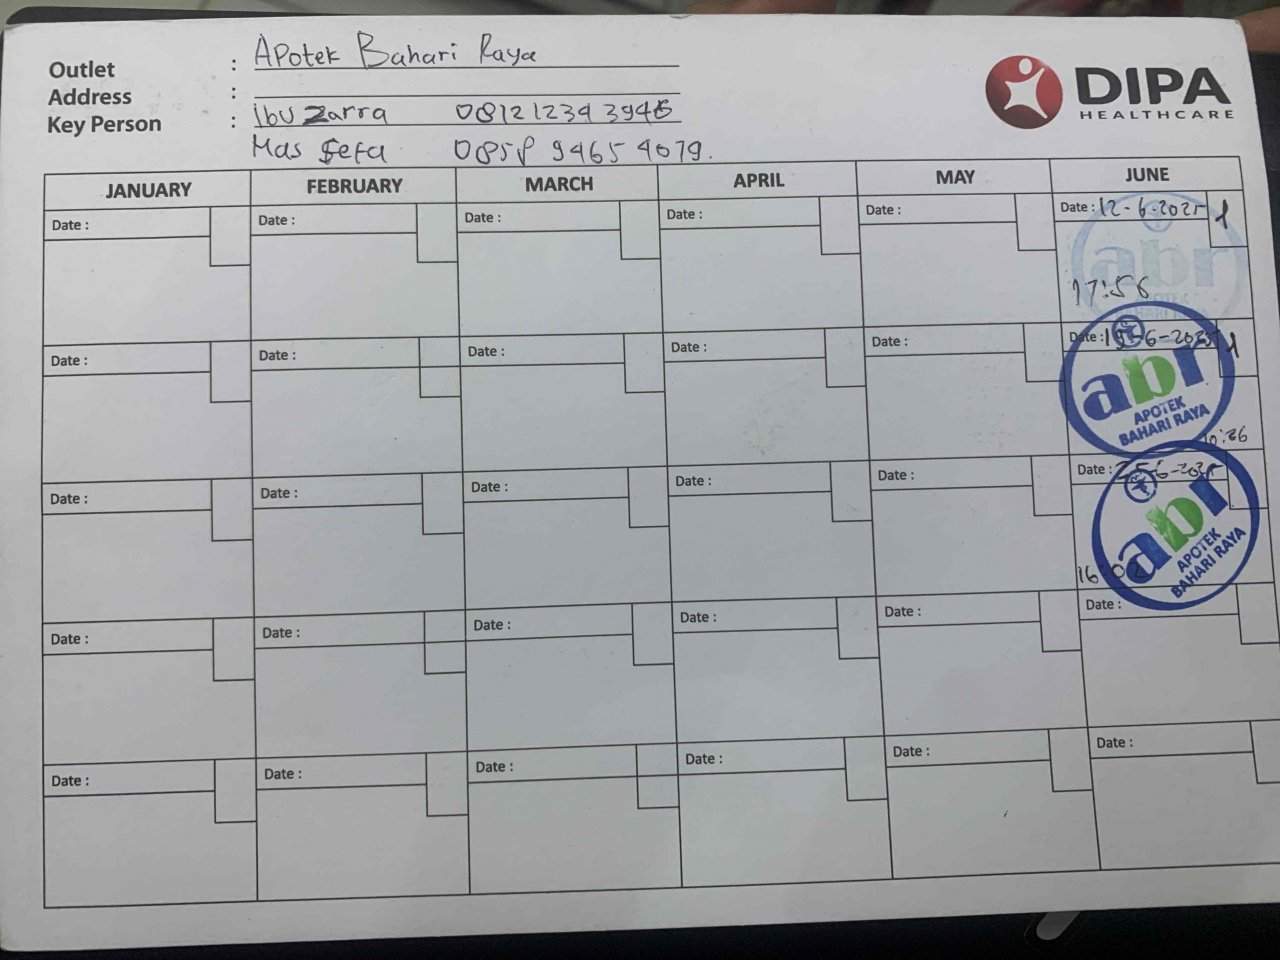 Outlet : Apotek Bahari Raya
Address :
Key Person : Ibu Zarra 081212343946
Mas Sefa 0858 9465 4079.
DIPA
HEALTHCARE
JANUARY FEBRUARY MARCH APRIL MAY JUNE
Date : Date : Date : Date : Date : Date : 12-6-2025 1
abr
APOTEK
BAHARI RAYA
17:56
Date : Date : Date : Date : Date : Date : -6-2025 1
abr
APOTEK
BAHARI RAYA
10:26
Date : Date : Date : Date : Date : Date : 25-6-2025
abr
APOTEK
BAHARI RAYA
Date : Date : Date : Date : Date : Date :
Date : Date : Date : Date : Date : Date :